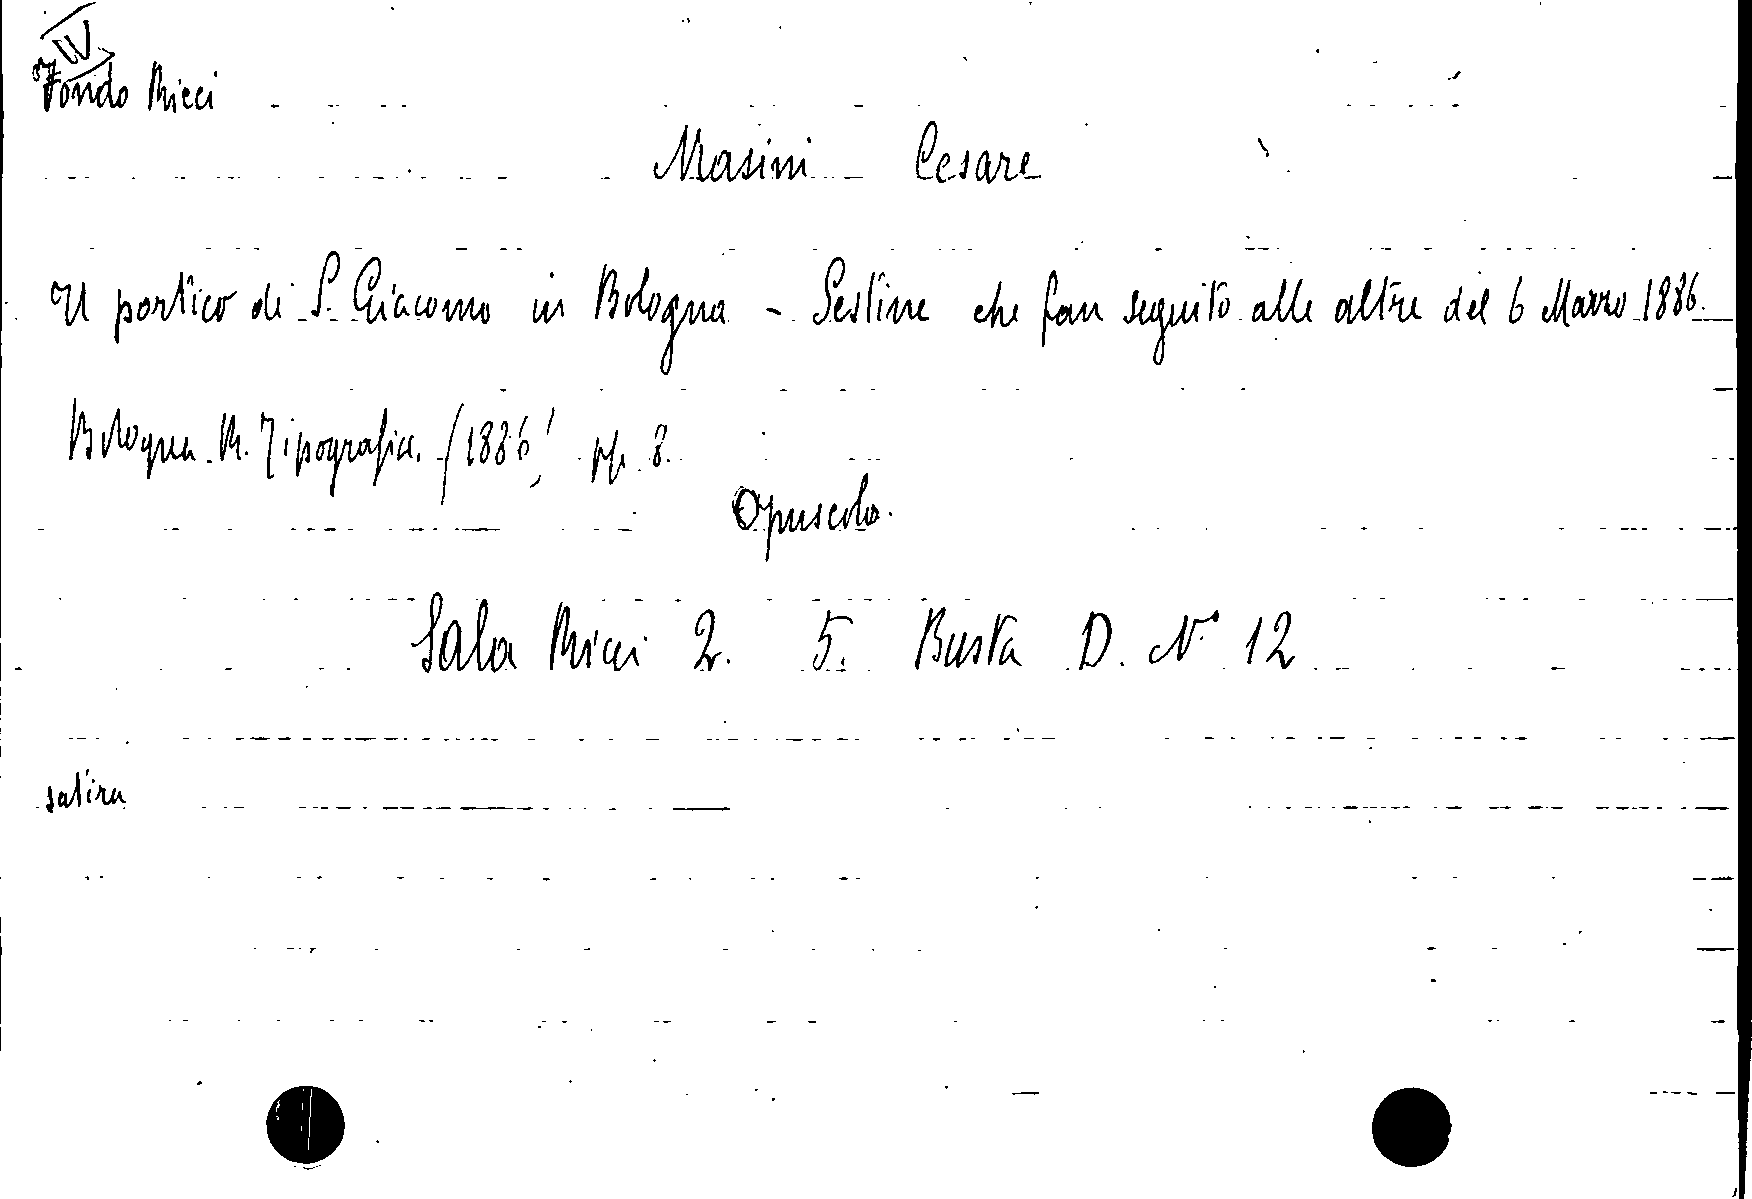 IV
Fondo Ricci
Masini Cesare
Il portico di S. Giacomo in Bologna - Sestine che fan seguito alle altre del 6 Marzo 1886.
Bologna. R. Tipografia. (1886) pp. 8.
Opuscolo.
Sala Ricci 2. 5. Busta D. N° 12
satira